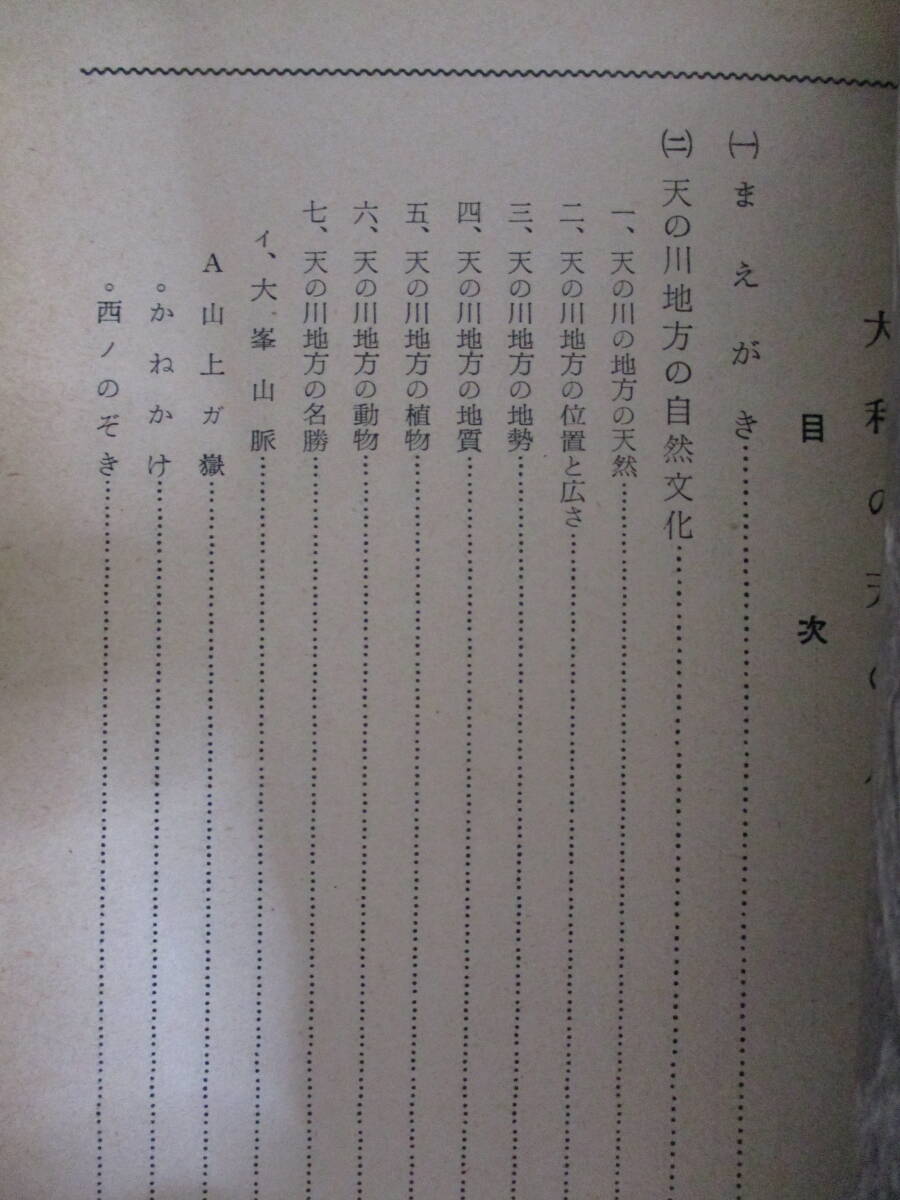 大和の天の
目次
㈠まえがき
㈡天の川地方の自然文化
一、天の川の地方の天然
二、天の川地方の位置と広さ
三、天の川地方の地勢
四、天の川地方の地質
五、天の川地方の植物
六、天の川地方の動物
七、天の川地方の名勝
ィ、大峯山脈
A山上ガ嶽
。かねかけ
。西ノのぞき